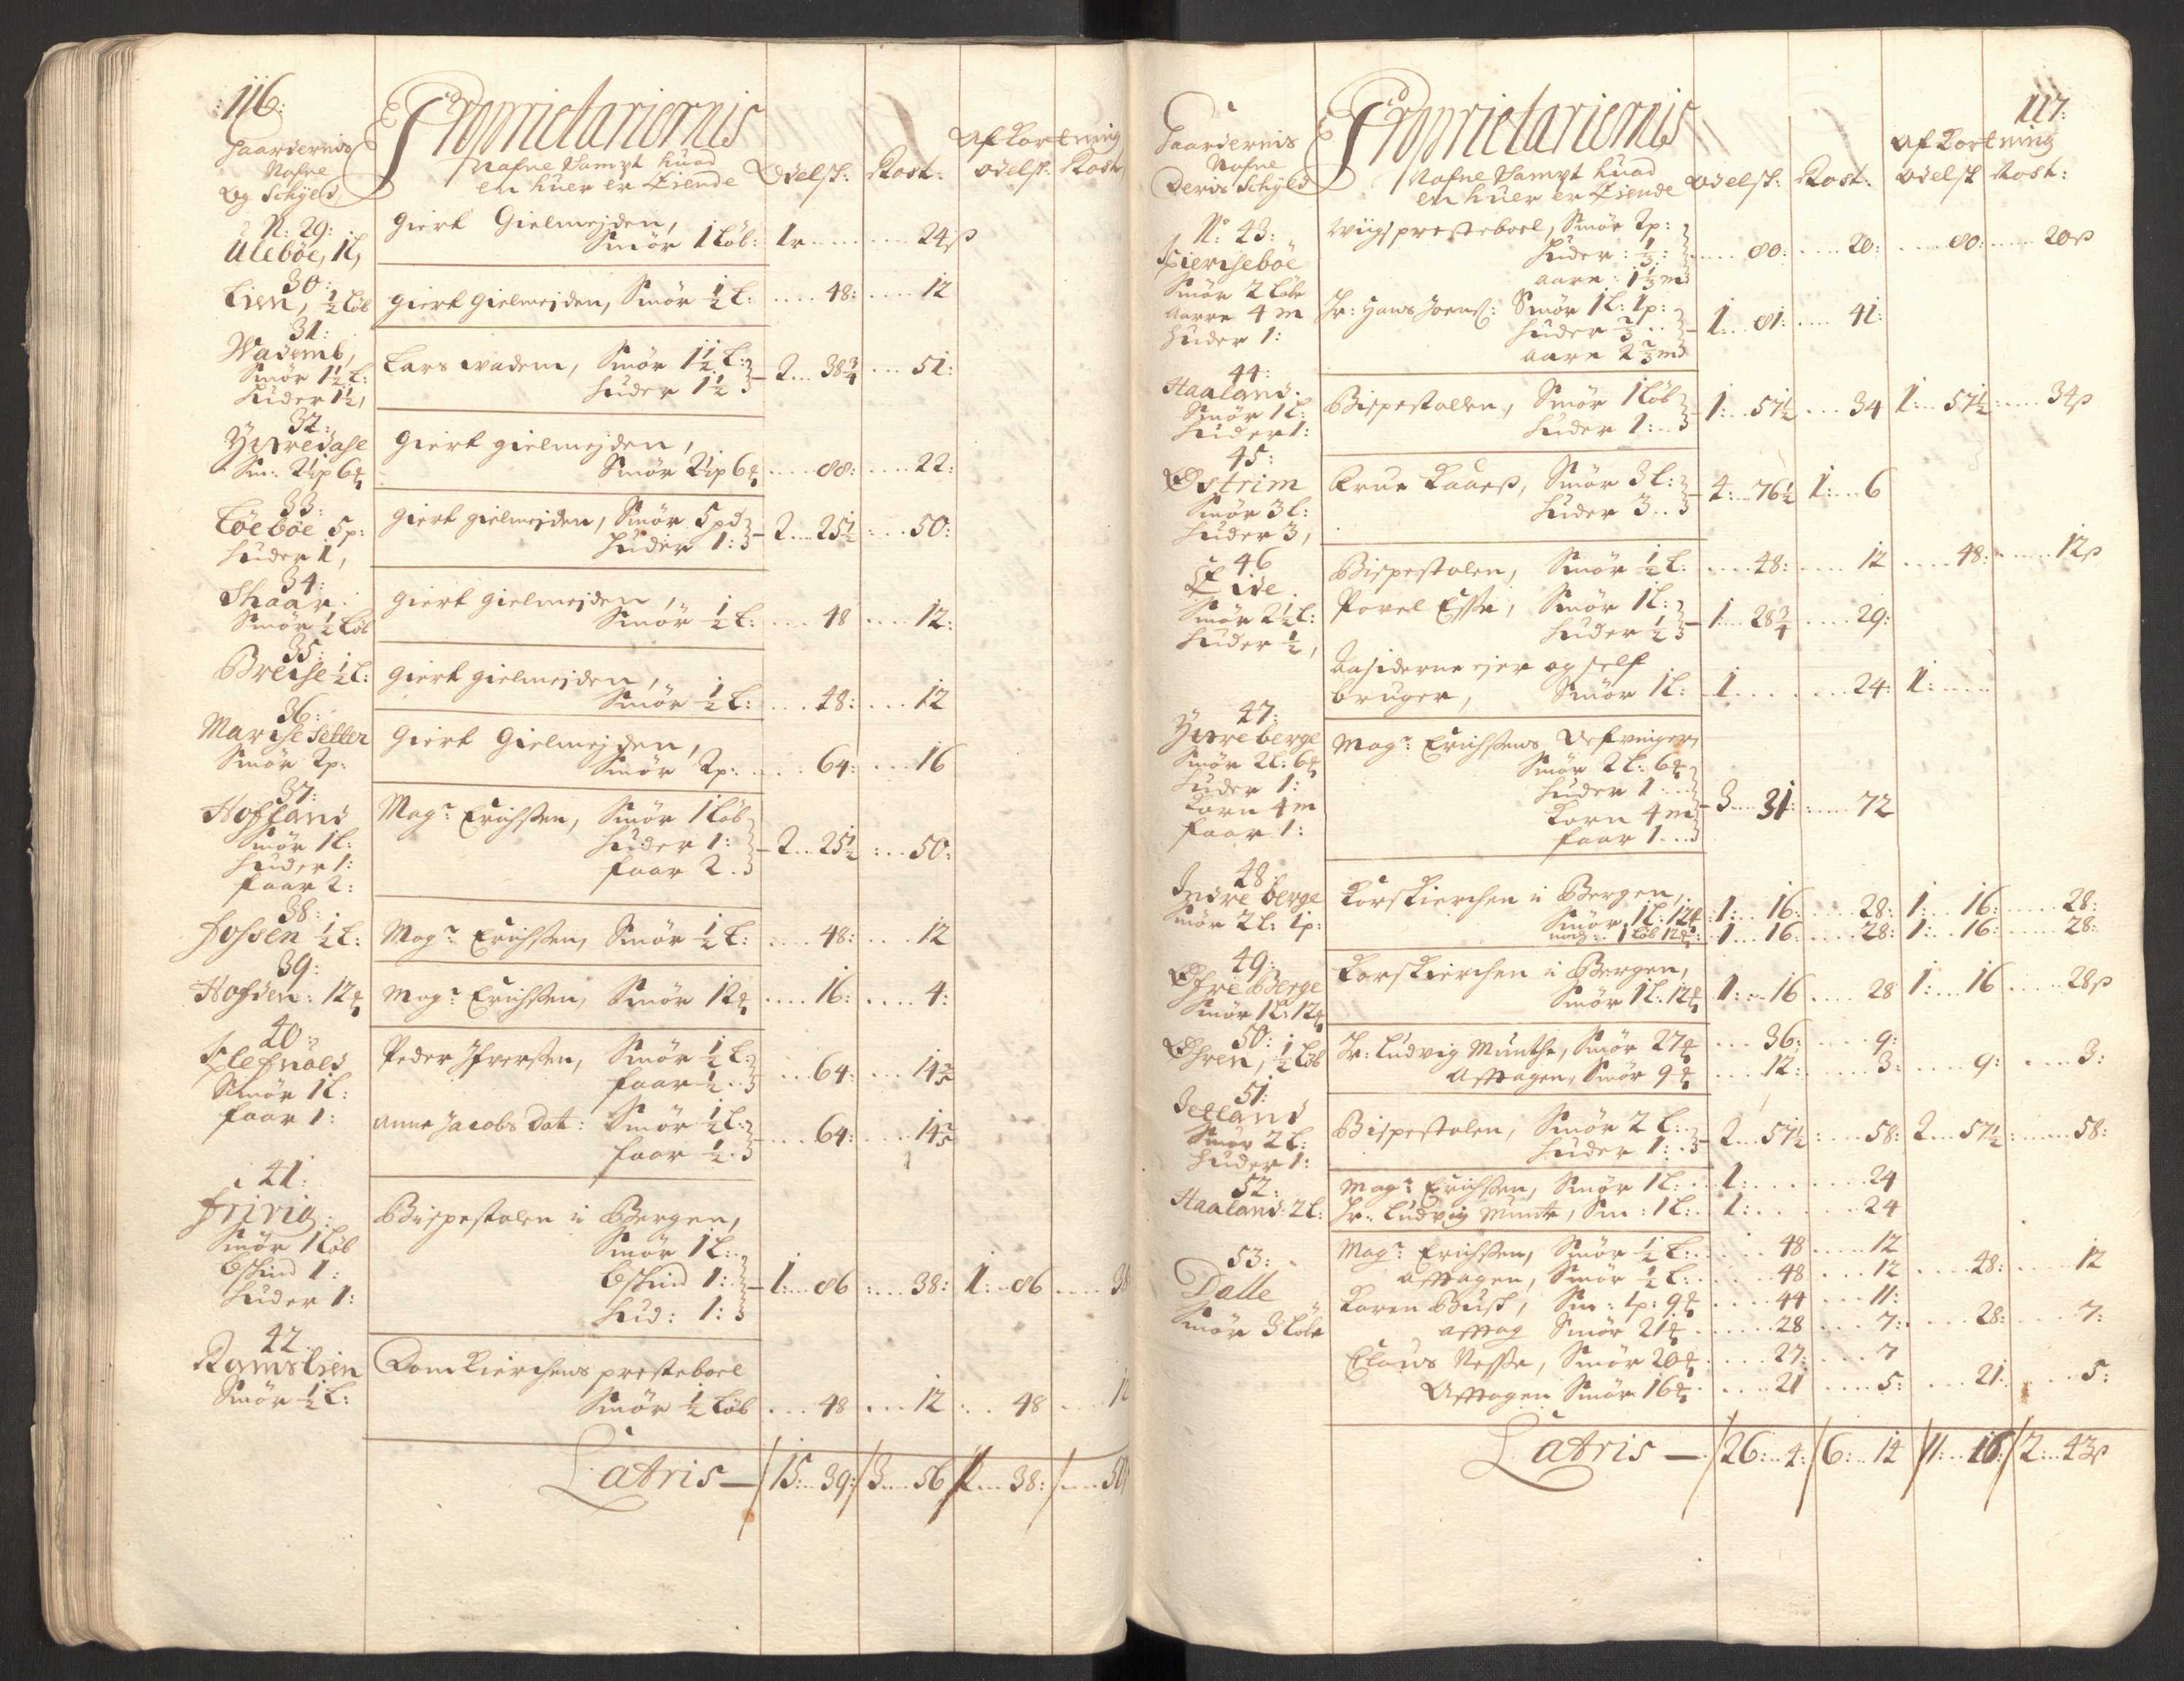 :116:
Gaardernis
Nafne
Og Schyld
Proprietariernis
Nafne Sampt huad
en huer er Eiende
Odelsk: Rost:
Afkortning
Odelsk: Rost
N: 29:
Ulebøe, 1 L,
Giert Gielmejden,
Smør 1 Løb: 1 r ........ 24 ß
30:
Lien, ½ Løb
Giert Gielmejden, Smør ½ L: .... 48: .... 12
31:
Wademb,
Smør 1½ L:
Huder 1½,
Lars Wadem, Smør 1½ L:
Huder 1½ - 2 ... 38¾ ... 51:
32:
Yttredahl
Sm: 2½ p 6 ℔
Giert Gielmejden,
Smør 2½ p 6 ℔ .... 88: .... 22:
33:
Løebøe 5 p:
Huder 1,
Giert Gielmejden, Smør 5 pd
Huder 1: - 2 ... 25½ ... 50:
34:
Skaar
Smør ½ Løb
Giert Gielmejden,
Smør ½ L: ... 48 .... 12:
35:
Breche ½ L:
Giert Gielmejden,
Smør ½ L: ... 48: ... 12
36:
Marchesetter
Smør 2 p:
Giert Gielmejden,
Smør 2 p: ... 64: ... 16
37:
Hofland
Smør 1 L:
Huder 1:
faar 2:
Magr: Erichsen, Smør 1 Løb
Huder 1:
faar 2. - 2 ... 25½ ... 50:
38:
Fossen ½ L:
Magr: Erichsen, Smør ½ L: .... 48: ... 12
39:
Hofden: 12 ℔
Magr: Erichsen, Smør 12 ℔ .... 16: .... 4:
40:
Klefnold
Smør 1 L:
faar 1:
Peder Iversen, Smør ½ L:
faar ½ ... 64: ... 14⅖
Anne Jacobs Dat: Smør ½ L:
faar ½ .... 64: .... 14⅖
41:
Fririg
Smør 1 Løb
bschind 1:
Huder 1:
Bispestolen i Bergen,
Smør 1 L:
bschind 1:
Hud: 1: - 1: .. 86 :... 38: 1: .. 86 .... 38
42.
Ramslien
Smør ½ L:
Domkierchens presteboel
Smør ½ Løb ... 48 .... 12 .. 48 .... 12
Latris - / 15: .. 39: / 3 ... 56 / 2 ... 38: / .... 50
117:
Gaardernis
Nafne
Deris Schyld
Proprietariernis
Nafne Sampt huad
en huer er Eiende
Odelsk: Rost:
Afkortning
Odelsk Rost:
No: 43:
Smør 2 Løbe
aarre 4 m
Huder 1:
Wiigs presteboel, Smør 2 p:
Huder: ⅓:
aare: 1⅓ m ..... 80: .... 20: .... 80: .... 20 ß
Hr: Hans Joens: Smør 1 L: 1 p:
Huder ⅔
aare 2⅔ m - 1: .. 81: .... 41:
44:
Haaland.
Smør 1 L:
Huder 1:
Bispestollen, Smør 1 Løb
Huder 1: - 1: .. 57½ ... 34 1: ... 57½ .... 34 ß
45:
Østrim
Smør 3 L:
Huder 3,
Frue Kaars, Smør 3 L:
Huder 3 .. - 4: .. 76½ 1: .. 6
46
Eide
Smør 2½ L:
Huder ½,
Bispestolen, Smør ½ L: .... 48: .... 12 .... 48: .... 12 ß
Povel Esse, Smør 1 L:
Huder ½ - 1: .. 28¾ .... 29:
ejer og self
bruger, Smør 1 L: 1 ........ 24: 1: ....
47:
Yttreberge
Smør 2 L: 6 ℔
Huder 1:
Korn 4 m
faar 1:
Magr: Erichsens Arfvinger,
Smør 2 L: 6 ℔
Huder 1 ..
Korn 4 m
faar 1 ... - 3 ... 31: .... 72
48
Indreberge
Smør 2 L: 1 p:
Korskierchen i Bergen,
Smør 1 L: 12 ℔ 1: .. 16: .... 28: 1: .. 16: .... 28:
noch: 1 Løb 12 ℔ 1 ... 16: .... 28: 1: .. 16: .... 28:
49:
Øfre Berge
Smør 1 L: 12 ℔
Korskierchen i Bergen,
Smør 1 L: 12 ℔ 1: .. 16 .... 28 1: ... 16 ..... 28 ß
50:
Øhren, ½ Løb
Hr: Ludvig Munthe, Smør 27 ℔ ... 36: .... 9:
Afftagen, Smør 9 ℔ .... 12: .... 3: ... 9: .... 3:
51:
Jetland
Smør 2 L:
Huder 1:
Bispestolen, Smør 2 L:
Huder 1: - 2 ... 57½ : ... 58: 2 ... 57½ : .... 58:
52:
Haaland: 2 L:
Magr: Erichsen, Smør 1 L: .. 1: ....... 24
Hr: Ludvig Munte, Sm: 1 L: .. 1: ..... 24
53:
Dalle
Smør 3 Løbe
Magr: Erichsen, Smør ½ L: .... 48 .... 12
Afftagen, Smør ½ L: .... 48 ... 12 .... 48: .... 12
Karen Busk, Sm: 1 p: 9 ℔ .... 44 ... 11:
Afftag Smør 21 ℔ ..... 28 ... 7: ... 28: .... 7:
Claus Nesse, Smør 20 ℔ .... 27: .... 7
Afftagen Smør 16 ℔ .... 21 .... 5: ... 21: .... 5:
Latris - / 26: .. 4: / 6: .. 14 / 11: .. 16: / 2: .. 43 ß